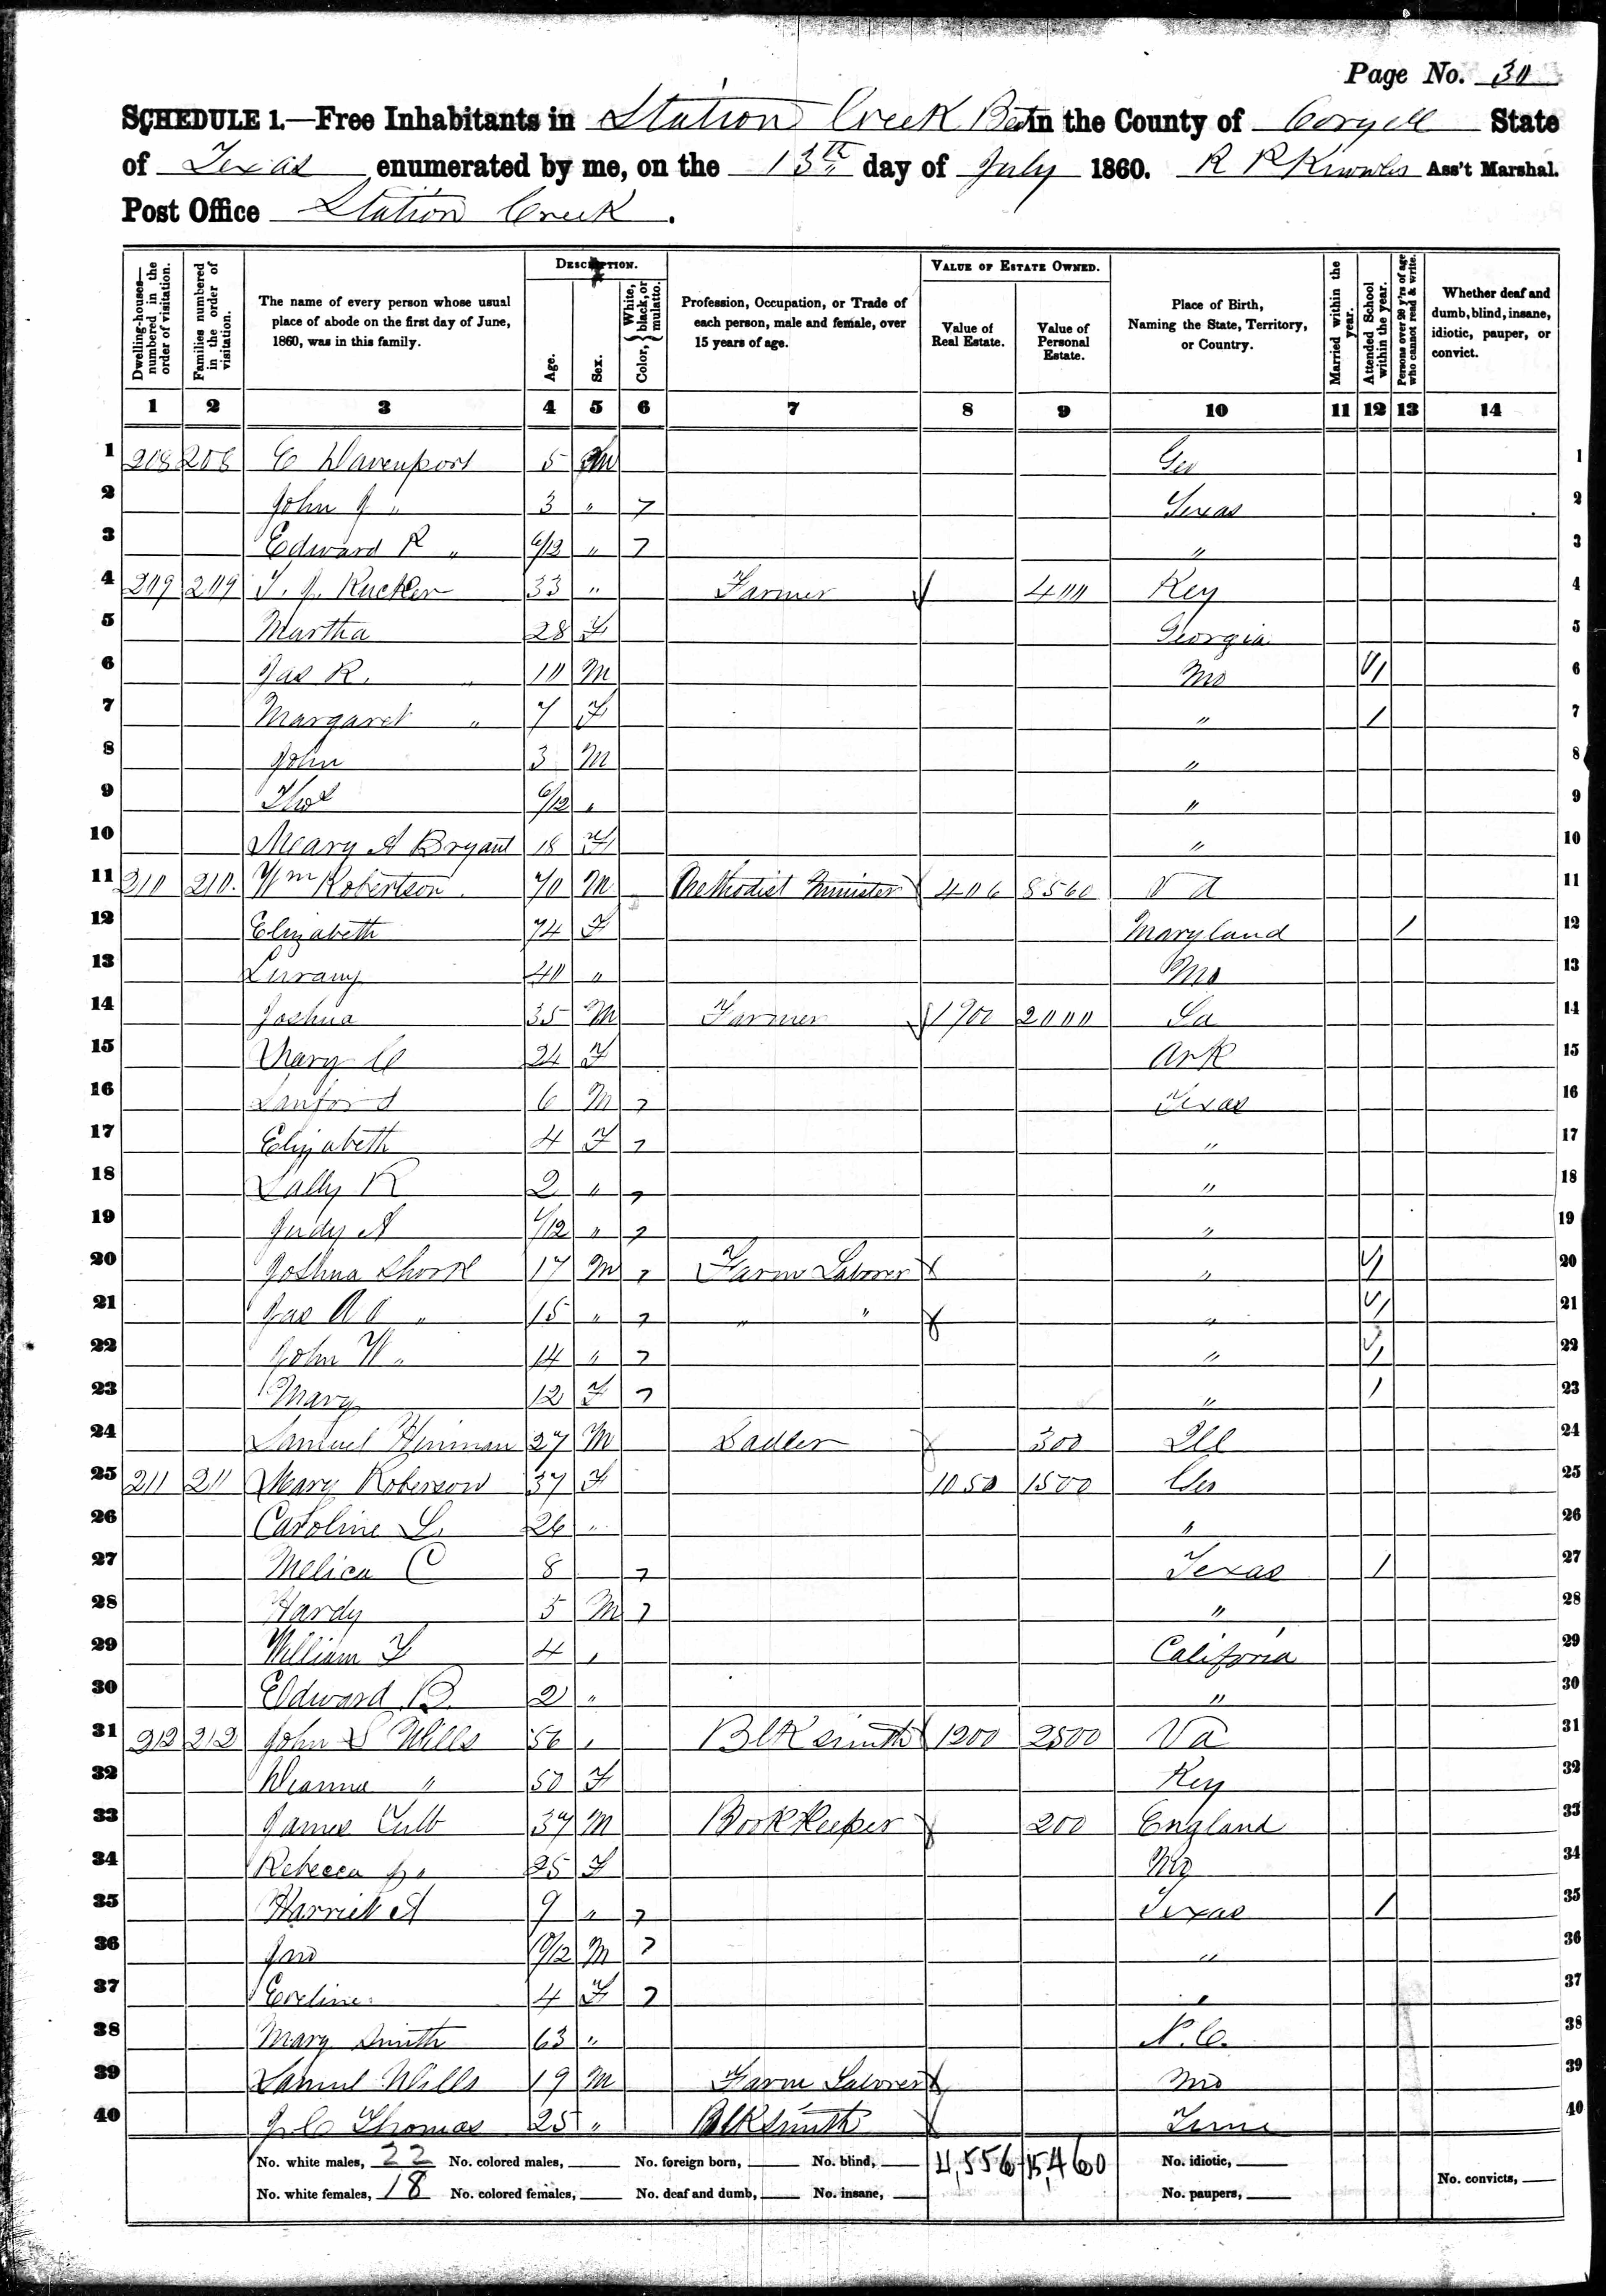 Page No. 30
SCHEDULE 1.—Free Inhabitants in Station Creek Beat in the County of Coryell State
of Texas enumerated by me, on the 13th day of July 1860. R R Knowles Ass't Marshal.
Post Office Station Creek.
Dwelling-houses—numbered in the order of visitation.
Families numbered in the order of visitation.
The name of every person whose usual place of abode on the first day of June, 1860, was in this family.
DESCRIPTION.
Age.
Sex.
Color, White, black, or mulatto.
Profession, Occupation, or Trade of each person, male and female, over 15 years of age.
VALUE OF ESTATE OWNED.
Value of Real Estate.
Value of Personal Estate.
Place of Birth, Naming the State, Territory, or Country.
Married within the year.
Attended School within the year.
Persons over 20 y'rs of age who cannot read & write.
Whether deaf and dumb, blind, insane, idiotic, pauper, or convict.
1 2 3 4 5 6 7 8 9 10 11 12 13 14
1 208 208 E Davenport 5 M Geo 1
2 John J " 3 " 7 Texas 2
3 Edward R " 6/12 " 7 " 3
4 209 209 T. J. Rucker 33 " Farmer 400 Key 4
5 Martha 28 F Georgia 5
6 Jas R. " 10 M Mo / 6
7 Margaret " 7 F " / 7
8 John 3 M " 8
9 Thos 6/12 " " 9
10 Meary A Bryant 18 F " 10
11 210 210. Wm Robertson. 70 M Methodist Minister 406 8560 Va 11
12 Elizabeth 74 F Maryland / 12
13 Lurany 40 " Mo 13
14 Joshua 35 M Farmer 1900 2000 La 14
15 Mary C 24 F Ark 15
16 Sanford 6 M 7 Texas 16
17 Elizabeth 4 F 7 " 17
18 Sally R 2 " 7 " 18
19 Judy A 1/12 " 7 " 19
20 Joshua 17 M 7 Farm Laborer " / 20
21 Jas " 15 " 7 " " " / 21
22 John W " 14 " 7 " / 22
23 Mary 12 F 7 " / 23
24 Samuel Hinman 27 M Sadler 300 Ill 24
25 211 211 Meary Roberson 37 F 1050 1500 Geo 25
26 Caroline L. 26 " " 26
27 Melica C 8 7 Texas / 27
28 Hardy 5 M 7 " 28
29 William F 4 " Califoria 29
30 Edward B. 2 " " 30
31 212 212 John S Wills 56 " Blksmith 1200 2500 Va 31
32 Dianna " 50 F Key 32
33 James Culb 37 M BookKeeper 200 England 33
34 Rebecca J " 25 F Mo 34
35 Harriet A 9 " 7 Texas / 35
36 Jno 10/12 M 7 " 36
37 Eveline 4 F 7 " 37
38 Mary Smith 63 " N. C. 38
39 Samul Wills 19 M Farm Laborer Mo 39
40 J. C Thomas 25 " Blksmith Tenn 40
No. white males, 22 No. colored males, No. foreign born, No. blind, 4,556 15,460 No. idiotic,
No. white females, 18 No. colored females, No. deaf and dumb, No. insane, No. paupers, No. convicts,